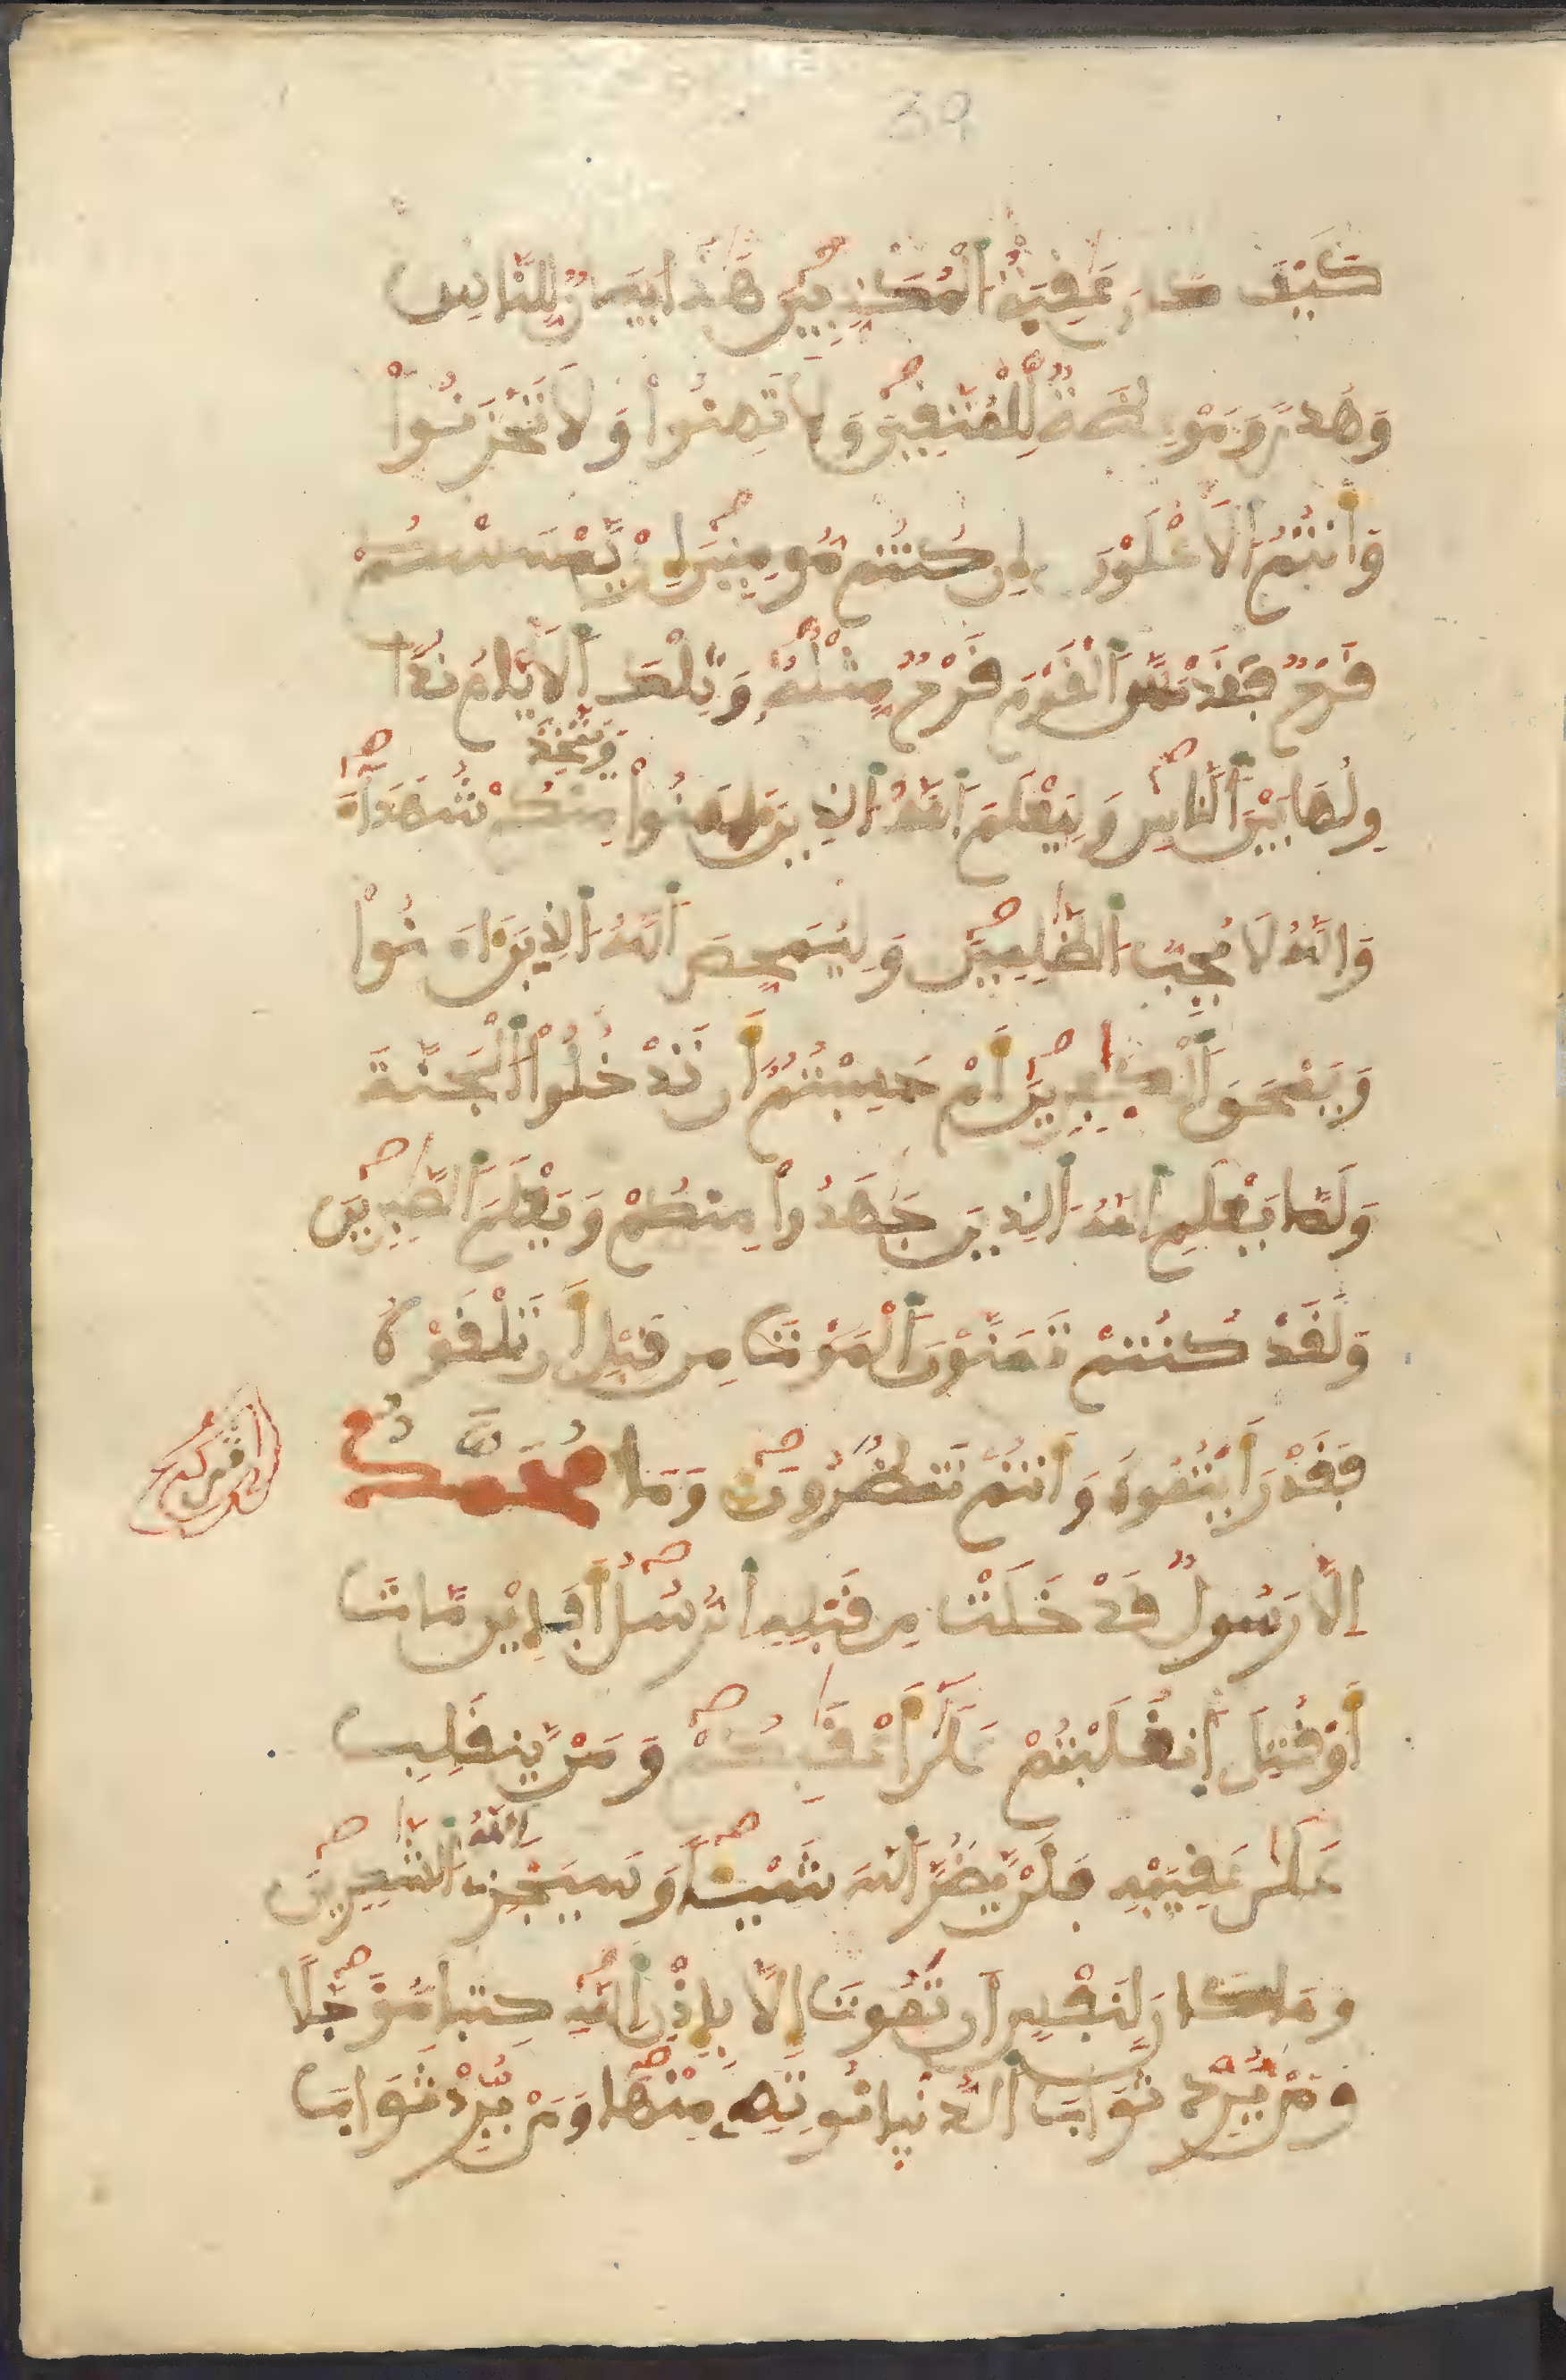 39
كَيْفَ كَانَ عَٰقِبَةُ اُ۬لْمُكَذِّبِينَ هَٰذَا بَيَانٌ لِّلنَّاسِ
وَهُدىً وَمَوْعِظَةٌ لِّلْمُتَّقِينَ وَلَا تَهِنُواْ وَلَا تَحْزَنُواْ
وَأَنتُمُ اُ۬لَأعْلَوْنَ إِن كُنتُم مُّومِنِينَ إِنْ يَّمْسَسْكُمْ
قَرْحٌ فَقَدْ مَسَّ اَ۬لْقَوْمَ قَرْحٌ مِّثْلُهُۥ وَتِلْكَ اَ۬لَايَّامُ نُدَا
وِلُهَا بَيْنَ اَ۬لنَّاسِ وَلِيَعْلَمَ اَ۬للَّهُ اُ۬لذِينَ ءَامَنُواْ مِنكُمْ شُهَدَآءَ
وَيَتَّخِذَ
وَاللَّهُ لَا يُحِبُّ اُ۬لظَّٰلِمِينَ وَلِيُمَحِّصَ اَ۬للَّهُ اُ۬لذِينَ ءَامَنُواْ
وَيَمْحَقَ اَ۬لْكَٰفِرِينَ أَمْ حَسِبْتُمُ أَن تَدْخُلُواْ اُ۬لْجَنَّةَ
وَلَمَّا يَعْلَمِ اِ۬للَّهُ اُ۬لذِينَ جَٰهَدُواْ مِنكُمْ وَيَعْلَمَ اَ۬لصَّٰبِرِينَ
وَلَقَدْ كُنتُمْ تَمَنَّوْنَ اَ۬لْمَوْتَ مِن قَبْلِ أَن تَلْقَوْهُ
فَقَدْ رَأَيْتُمُوهُ وَأَنتُمْ تَنظُرُونَ وَمَا مُحَمَّدٌ
إِلَّا رَسُولٌ قَدْ خَلَتْ مِن قَبْلِهِ اِ۬لرُّسُلُ أَفَإِيْن مَّاتَ
أَوْ قُتِلَ اَ۪نقَلَبْتُمْ عَلَىٰ أَعْقَٰبِكُمْ وَمَنْ يَّنقَلِبْ
عَلَىٰ عَقِبَيْهِ فَلَنْ يَّضُرَّ اَ۬للَّهَ شَيْـٔاً وَسَيَجْزِے اِ۬للَّهُ اُ۬لشَّٰكِرِينَ
وَمَا كَانَ لِنَفْسٍ أَن تَمُوتَ إِلَّا بِإِذْنِ اِ۬للَّهِ كِتَٰباً مُّؤَجَّلًا
وَمَنْ يُّرِدْ ثَوَابَ اَ۬لدُّنْيَا نُوتِهِۦ مِنْهَا وَمَنْ يُّرِدْ ثَوَابَ